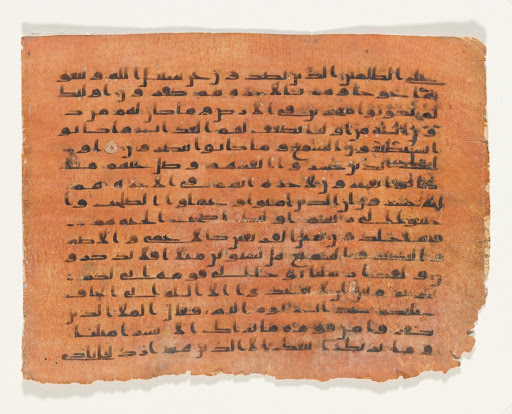 على الظلمين الذين يصدون عن سبيل الله ويبغو
نها عوجا وهم بالاخرة هم كفرون اولئك
لم يكونوا معجزين في الارض وما كان لهم من د
ون الله من اوليا يضعف لهم العذاب ما كانوا
يستطيعون السمع وما كانوا يبصرون او
لئك الذين خسروا انفسهم وضل عنهم ما
كانوا يفترون لا جرم انهم في الاخرة هم
الاخسرون ان الذين امنوا وعملوا الصلحت وا
خبتوا الى ربهم اولئك اصحب الجنة هم
فيها خلدون مثل الفريقين كالاعمى والاصم
والبصير والسميع هل يستوين مثلا افلا تذكرو
ن ولقد ارسلنا نوحا الى قومه اني لكم نذ
ير مبين ان لا تعبدوا الا الله اني اخاف
عليكم عذاب يوم اليم فقال الملا الذين
كفروا من قومه ما نريك الا بشرا مثلنا
وما نريك اتبعك الا الذين هم اراذلنا